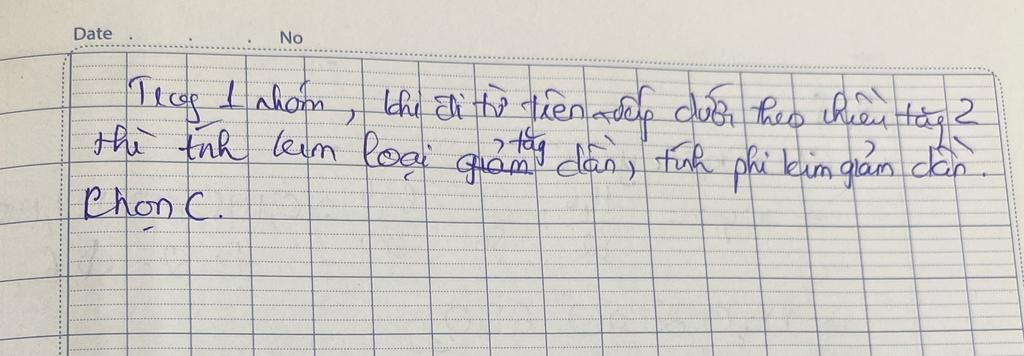 Date . . . No
Trog 1 nhóm, khi đi từ trên xuống dưới theo chiều tăg Z
thì tính kim loại giảm tăg dần, tính phi kim giảm dần.
Chọn C.